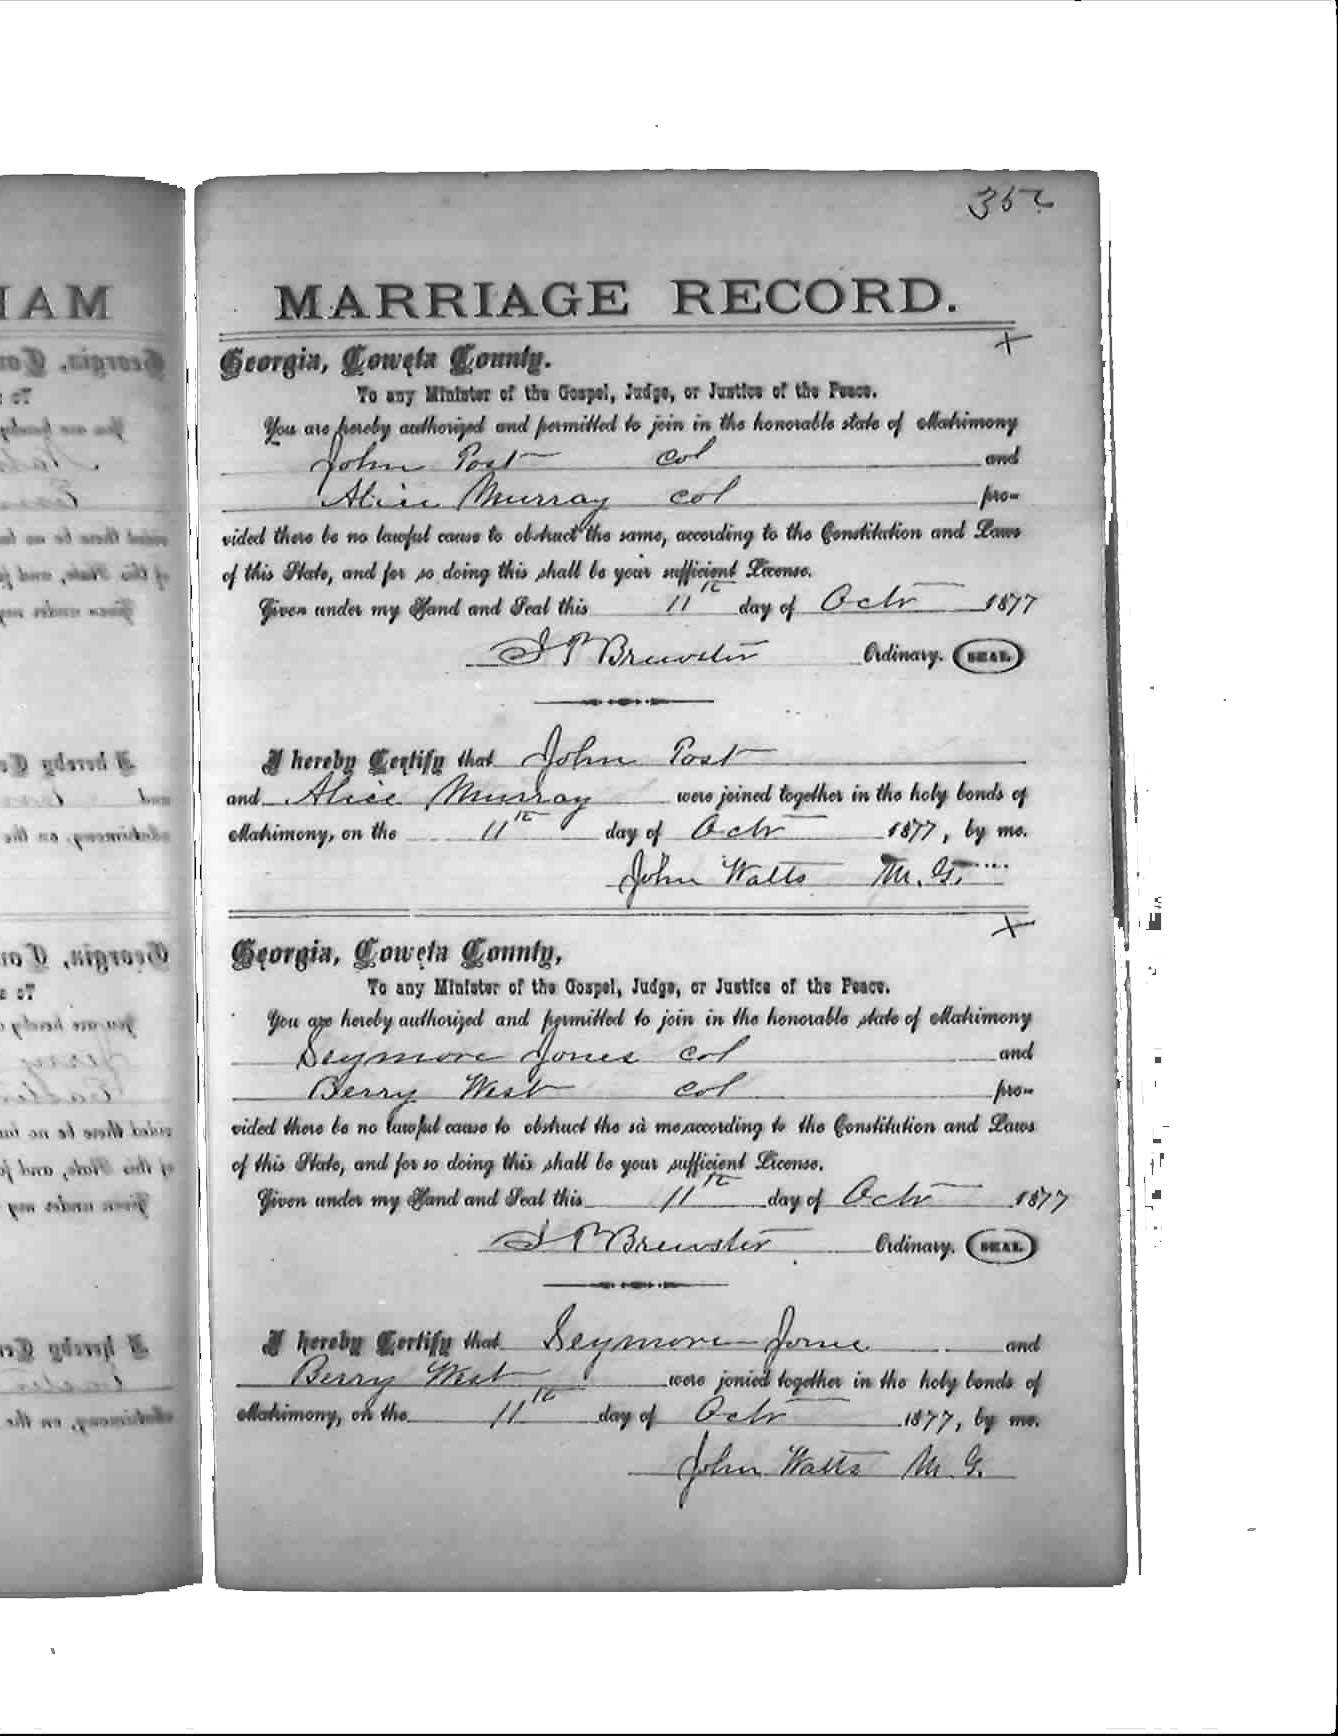 MARRIAGE RECORD.
Georgia, Coweta County.
To any Minister of the Gospel, Judge, or Justice of the Peace.
You are hereby authorized and permitted to join in the honorable state of Matrimony
John Post col and
Alice Murray col pro-
vided there be no lawful cause to obstruct the same, according to the Constitution and Laws
of this State, and for so doing this shall be your sufficient License.
Given under my Hand and Seal this 11th day of Octr 1877
J P Brewster Ordinary. SEAL
I hereby Certify that John Post
and Alice Murray were joined together in the holy bonds of
Matrimony, on the 11th day of Octr 1877, by me.
John Watts M. G.
Georgia, Coweta County,
To any Minister of the Gospel, Judge, or Justice of the Peace.
You are hereby authorized and permitted to join in the honorable state of Matrimony
Seymore Jones col and
Berry West col pro-
vided there be no lawful cause to obstruct the sa me, according to the Constitution and Laws
of this State, and for so doing this shall be your sufficient License.
Given under my Hand and Seal this 11th day of Octr 1877
J P Brewster Ordinary. SEAL
I hereby Certify that Seymore Jones and
Berry West were jonied together in the holy bonds of
Matrimony, on the 11th day of Octr 1877, by me.
John Watts M. G.